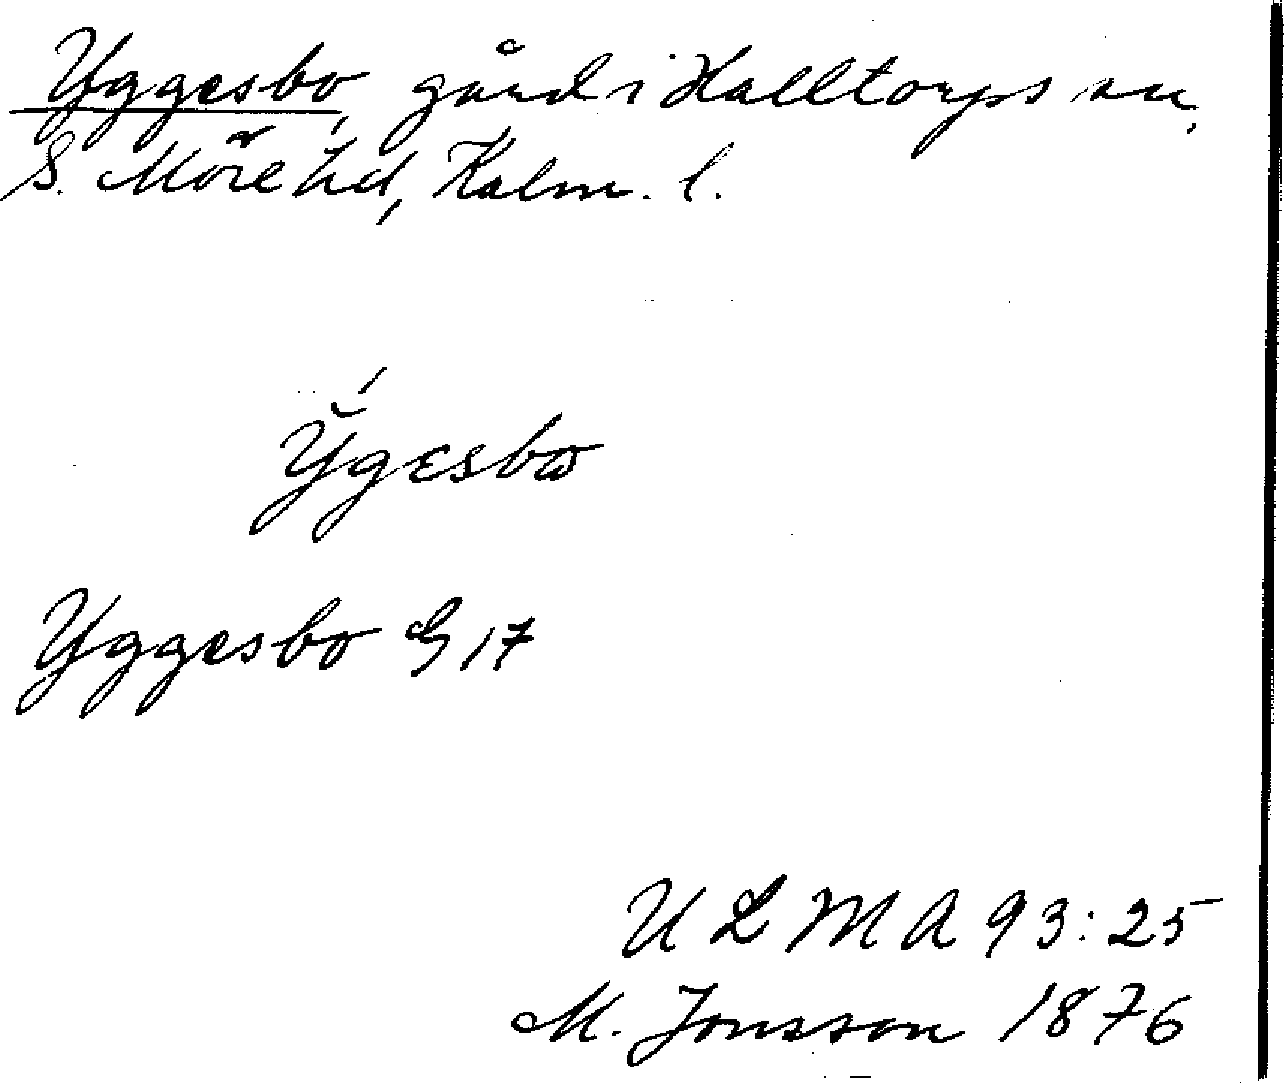 Yggesbo, gård i Halltorps sn,
S. Möre hd, Kalm. l.
Y̆́gesbω
Yggesbo G 17
U L M A 93:25
M. Jonsson 1876